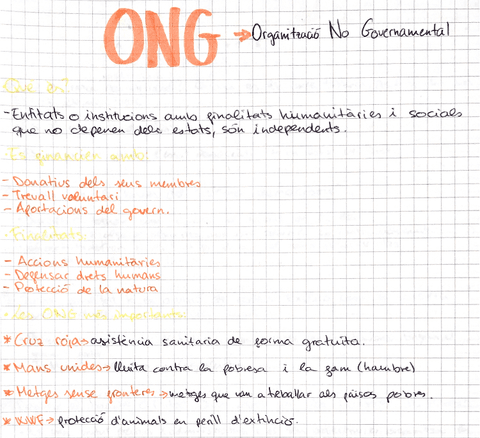 ONG → Organització No Governamental
· Que és?
- Entitats o institucions amb finalitats humanitàries i socials
que no depenen dels estats, són independents.
· Es financien amb:
- Donatius dels seus membres
- Trevall voluntari
- Aportacions del govern.
· Finalitats:
- Accions humanitàries
- Defensar drets humans
- Protecció de la natura
· Les ONG més importants:
* Cruz roja → asistència sanitaria de forma gratuïta.
* Mans unides → lluita contra la pobresa i la fam (hambre)
* Metges sense fronteres → metges que van a treballar als països pobres.
* WWF → protecció d'animals en perill d'extinció.